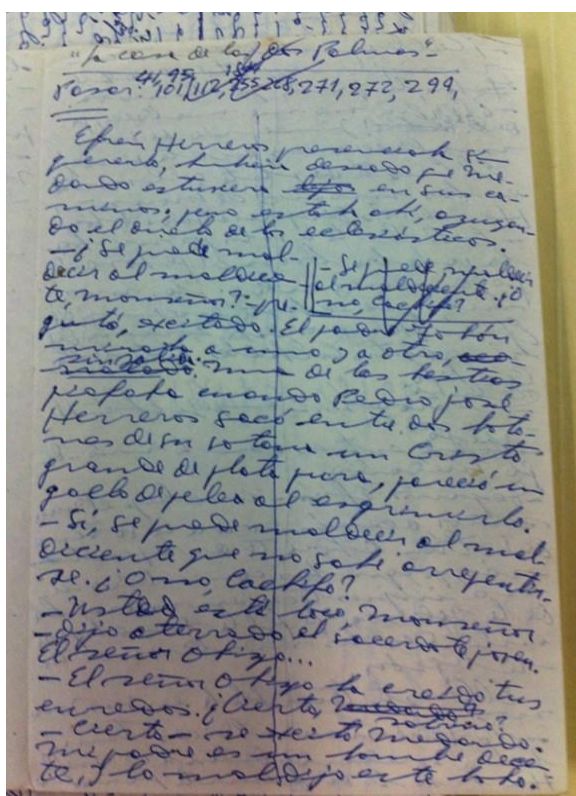 "La casa de las dos Palmas"-
Pasar: 101, 112, 255, 268, 271, 272, 299,
Efrén Herreros presenciaba
hubiera deseado que Me-
dardo estuviera en sus ca-
minos, pero estaba ahí,
do el duelo de los eclesiásticos.
-¿Se puede mal-
decir al maldicien-
te, monseñor? - pre-
-Se puede maldecir
al maldiciente. ¿O
no, Cachifo?
guntó, excitado. El padre Tobón
miraba a uno y a otro,
sin saber. de las bestias
piafaba cuando Pedro José
Herreros sacó entre dos boto-
nes de su sotana un Cristo
grande de plata pura, pareció un
gallo de pelea al esgrimirlo.
-Sí, se puede maldecir al mal-
diciente que no sabe arrepentir-
se. ¿O no, Cachifo?
-Usted está loco, monseñor
-dijo aterrado el sacerdote joven.
El señor Obispo...
-El señor Obispo ha creído tus
enredos. ¿Cierto,
-Cierto- se excitó Medardo.
Mi padre es un hombre decen-
te, y lo maldijo este bobo.